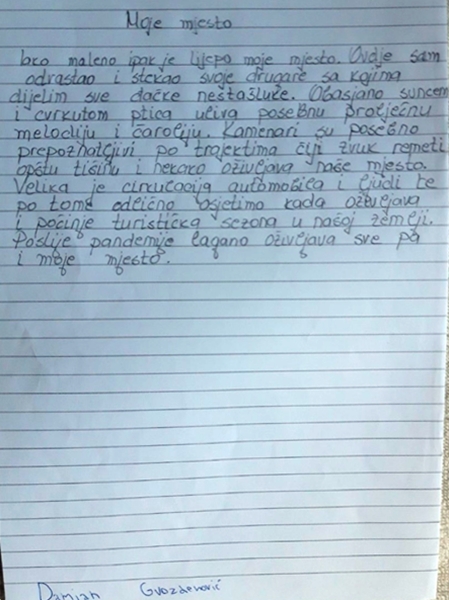 Moje mjesto
Iako maleno ipak je lijepo moje mjesto. Ovdje sam
odrastao i stekao svoje drugare sa kojima
dijelim sve đačke nestašluke. Obasjano suncem
i cvrkutom ptica uliva posebnu proljećnu
melodiju i čaroliju. Kamenari su posebno
prepoznatljivi po trajektima čiji zvuk remeti
opštu tišinu i nekako oživljava naše mjesto.
Velika je cirkulacija automobila i ljudi te
po tome odlično osjetimo kada oživljava
i počinje turistička sezona u našoj zemlji.
Poslije pandemije lagano oživljava sve pa
i moje mjesto.
Damjan Gvozdenović